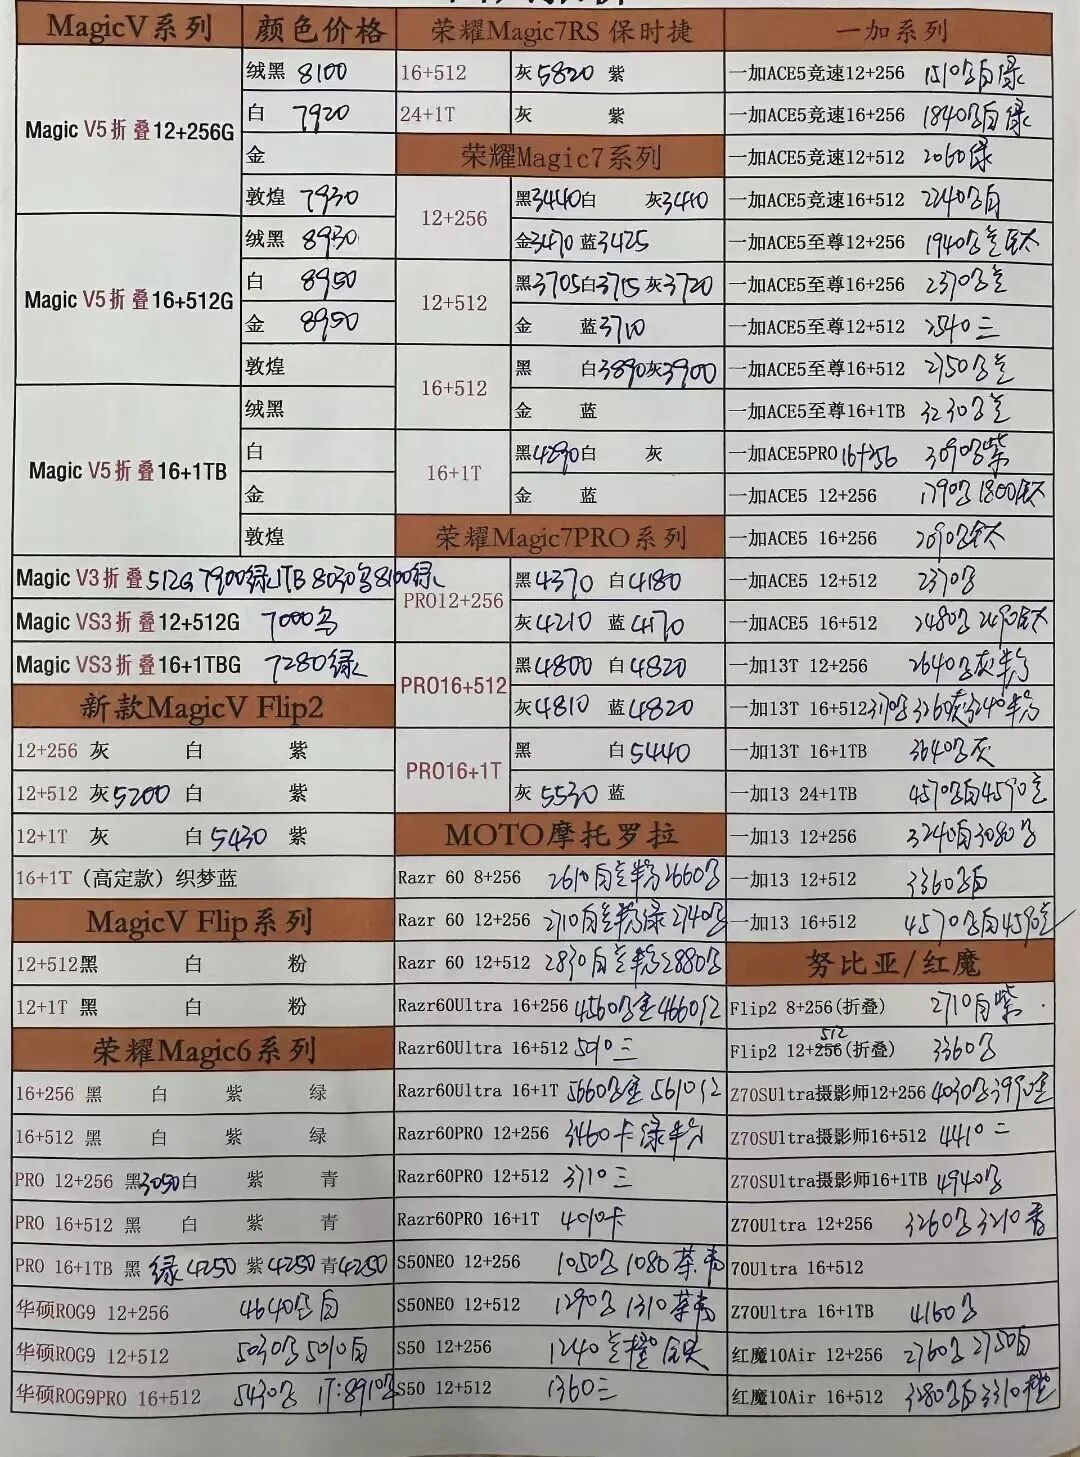 MagicV系列 颜色价格
Magic V5折叠12+256G
绒黑 8100
白 7920
金
敦煌 7930
Magic V5折叠16+512G
绒黑 8930
白 8950
金 8950
敦煌
Magic V5折叠16+1TB
绒黑
白
金
敦煌
Magic V3折叠512G 7900绿 1TB 8030乌8100绿
Magic VS3折叠12+512G 7000乌
Magic VS3折叠16+1TBG 7280绿
新款MagicV Flip2
12+256 灰 白 紫
12+512 灰5200 白 紫
12+1T 灰 白5430 紫
16+1T（高定款）织梦蓝
MagicV Flip系列
12+512黑 白 粉
12+1T 黑 白 粉
荣耀Magic6系列
16+256 黑 白 紫 绿
16+512 黑 白 紫 绿
PRO 12+256 黑3050白 紫 青
PRO 16+512 黑 白 紫 青
PRO 16+1TB 黑 绿4250 紫4250青4250
华硕ROG9 12+256 4640白
华硕ROG9 12+512 5030 5010白
华硕ROG9PRO 16+512 5430 1T:8910
荣耀Magic7RS 保时捷
16+512 灰5820 紫
24+1T 灰 紫
荣耀Magic7系列
12+256
黑3440白 灰3410
金3470 蓝3425
12+512
黑3705白3715灰3720
金 蓝3710
16+512
黑 白3890灰3900
金 蓝
16+1T
黑4290白 灰
金 蓝
荣耀Magic7PRO系列
PRO12+256
黑4370 白4180
灰4210 蓝4170
PRO16+512
黑4800 白4820
灰4810 蓝4820
PRO16+1T
黑 白5440
灰5530 蓝
MOTO摩托罗拉
Razr 60 8+256 2610 2660
Razr 60 12+256 2710 绿2740
Razr 60 12+512 2830 2880
Razr60Ultra 16+256 4560 4660红
Razr60Ultra 16+512 5010三
Razr60Ultra 16+1T 5660 5610红
Razr60PRO 12+256 3460卡绿
Razr60PRO 12+512 3710三
Razr60PRO 16+1T 4010卡
S50NEO 12+256 1050 1080茶
S50NEO 12+512 1290 1310茶
S50 12+256 1240
S50 12+512 1360三
一加系列
一加ACE5竞速12+256 1510 白绿
一加ACE5竞速16+256 1840 白绿
一加ACE5竞速12+512 2060绿
一加ACE5竞速16+512 2240 白
一加ACE5至尊12+256 1940 钛
一加ACE5至尊16+256 2370
一加ACE5至尊12+512 2540三
一加ACE5至尊16+512 2750
一加ACE5至尊16+1TB 3230
一加ACE5PRO16+256 3090 紫
一加ACE5 12+256 1790 1800钛
一加ACE5 16+256 2090 钛
一加ACE5 12+512 2370
一加ACE5 16+512 2480 2490钛
一加13T 12+256 2640 灰粉
一加13T 16+512 3170 3260灰3240粉
一加13T 16+1TB 3640 灰
一加13 24+1TB 4570 白4590
一加13 12+256 3240白3080
一加13 12+512 3360 白
一加13 16+512 4570 白4590
努比亚/红魔
Flip2 8+256(折叠) 2710白紫
512
Flip2 12+256(折叠) 3360
Z70SUltra摄影师12+256 4030 3990
Z70SUltra摄影师16+512 4410二
Z70SUltra摄影师16+1TB 4940
Z70Ultra 12+256 3260 3210
70Ultra 16+512
Z70Ultra 16+1TB 4160
红魔10Air 12+256 2760 2750白
红魔10Air 16+512 3280 白3310橙